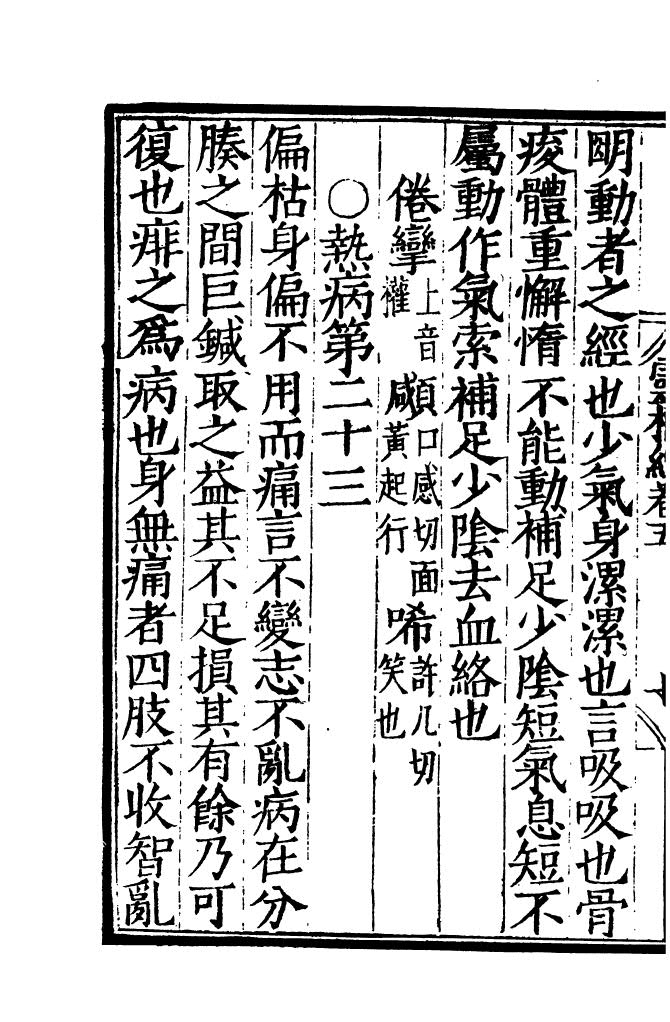 明動者之經也少氣身漯漯也言吸吸也骨
痠體重懈惰不能動補足少陰短氣息短不
屬動作氣索補足少陰去血絡也
倦攣上音權 顑口感切面咸黃起行 唏許几切笑也
○熱病第二十三
偏枯身偏不用而痛言不變志不亂病在分
腠之間巨鍼取之益其不足損其有餘乃可
復也痱之爲病也身無痛者四肢不收智亂